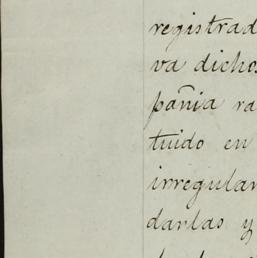 registrad
va dichos
pañia ra
tuido en
irregular
darlas y